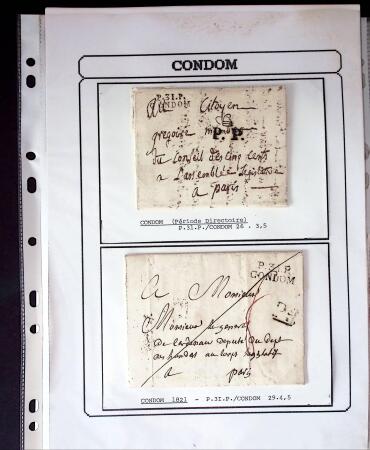 CONDOM
P.31.P.
CONDOM
Au Citoyen
P.P
gregoire
du Conseil des cinq cents
a L'assemblée Legislative
a paris
CONDOM (Période Directoire)
P.31.P./CONDOM 26 . 3,5
P.31.P.
CONDOM
A Monsieur
Monsieur le general
député du dept
des landes au corps legislatif
a paris
CONDOM 1821 - P.31.P./CONDOM 29.4,5